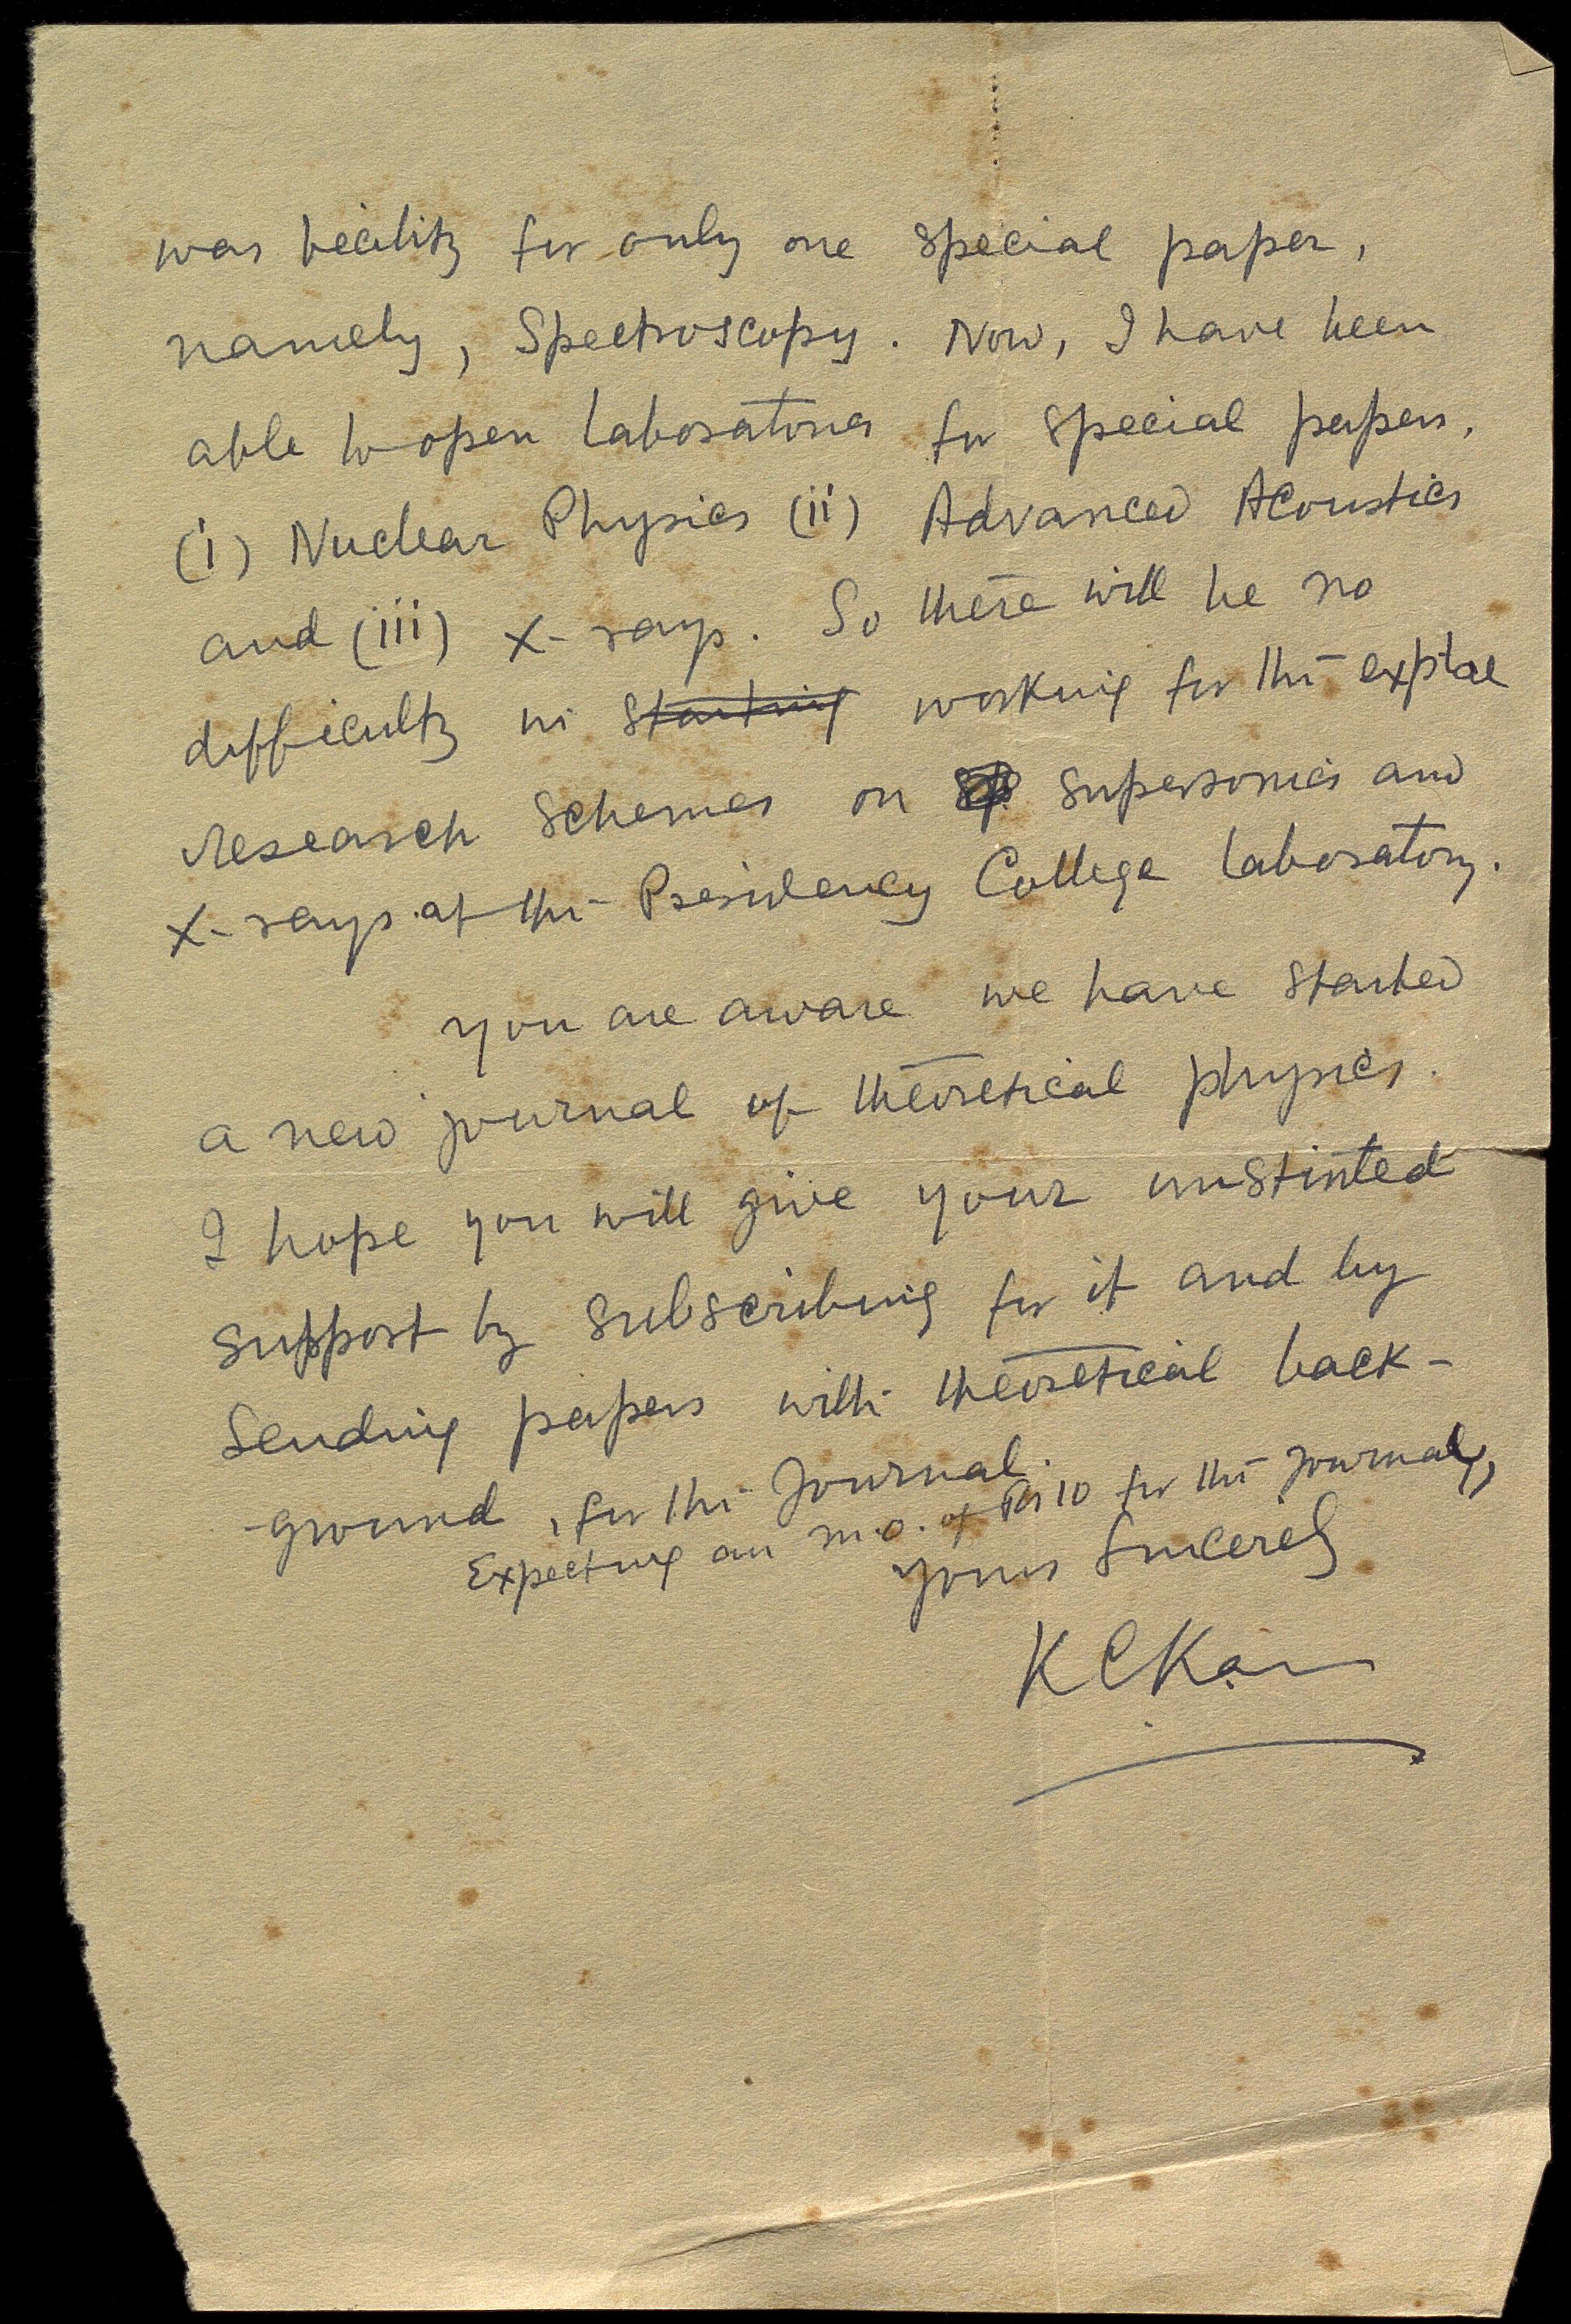 was facility for only one special paper,
namely, Spectroscopy. Now, I have been
able to open laboratories for special papers,
(i) Nuclear Physics (ii) Advanced Acoustics
and (iii) X-rays. So there will be no
difficulty in starting working for the exptal
research schemes on supersonics and
X-rays at the Presidency College laboratory.
You are aware we have started
a new journal of theoretical physics.
I hope you will give your unstinted
support by subscribing for it and by
sending papers with theoretical back-
ground, for the Journal.
Expecting an M.O. of Rs 10 for the Journal,
Yours Sincerely
K C Kar